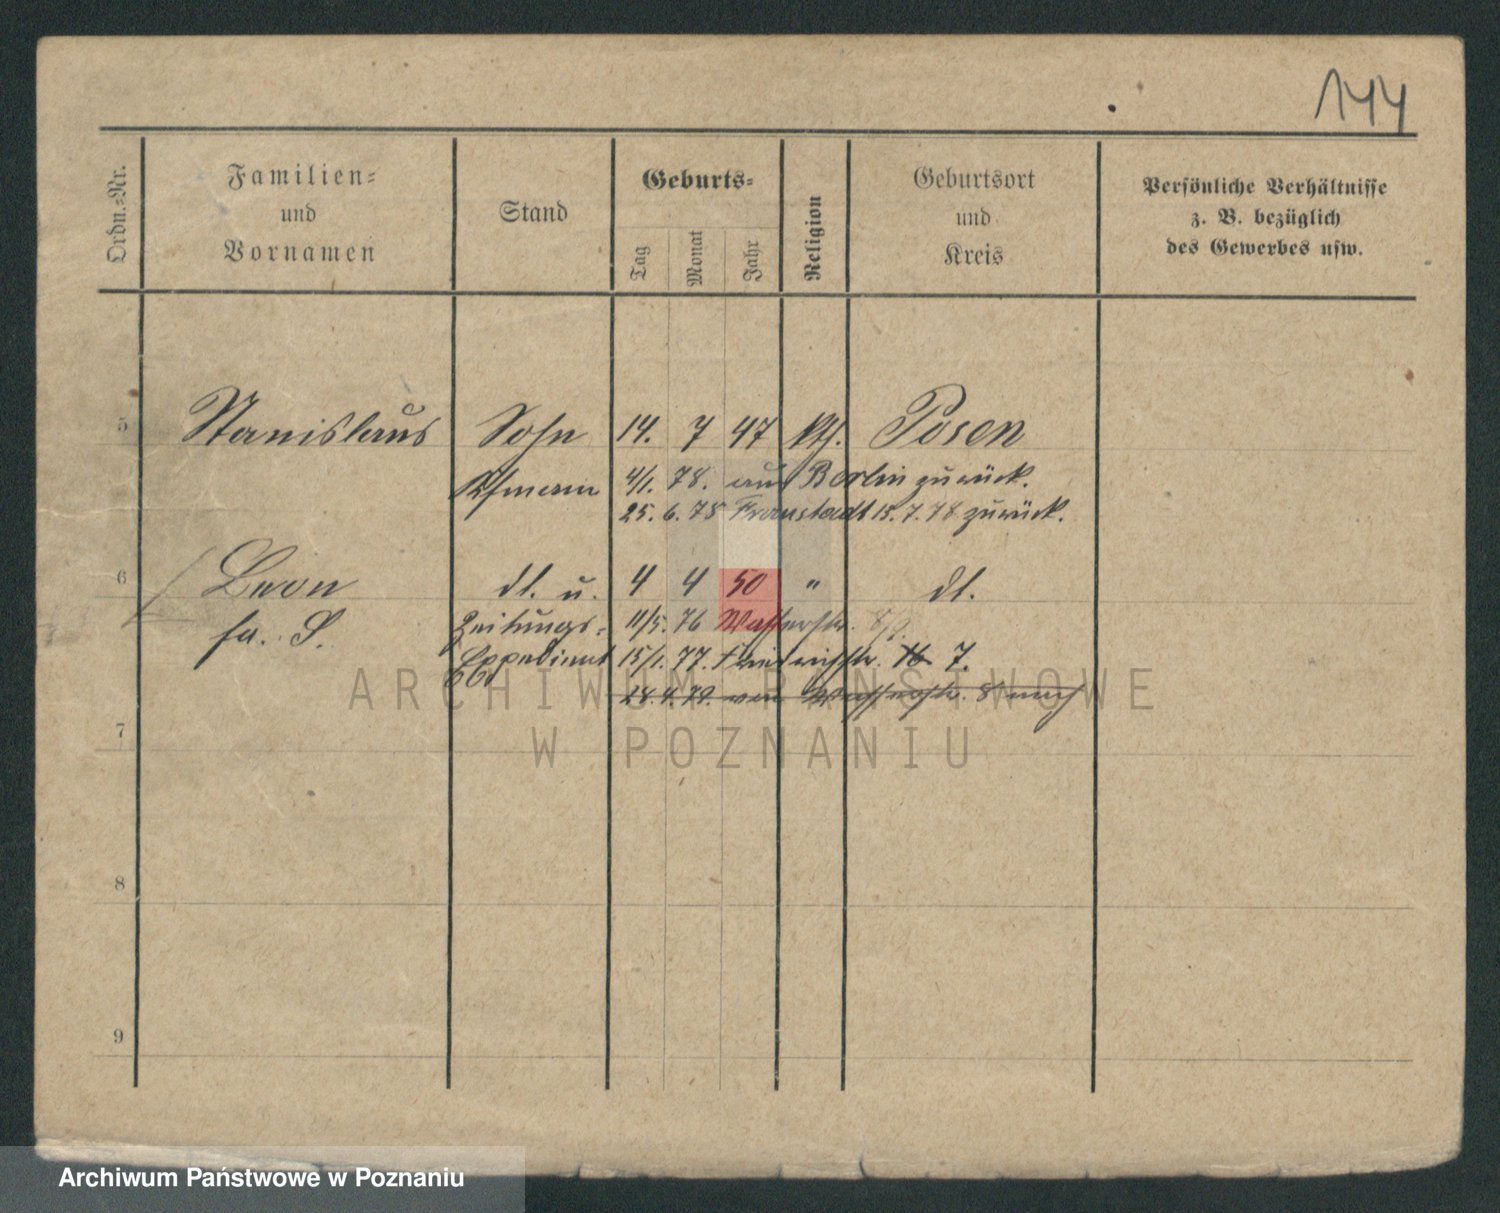 144
Ordn.-Nr.
Familien-
und
Vornamen
Stand
Geburts-
Tag
Monat
Jahr
Religion
Geburtsort
und
Kreis
Persönliche Verhältnisse
z. B. bezüglich
des Gewerbes usw.
5 Stanislaus Sohn 14. 7 47 kth. Posen
Kfmann 4/1. 78. aus Berlin zurück.
25. 6. 78 Fraustadt 15. 7. 78 zurück.
6 Leon dt. u. 4 4 50 " dt.
fa. S. Zeitungs- 11/5. 76 Wasserstr.
Expedient 15/1. 77. 7.
28. 4. 79. von Wasserstr. 8
ARCHIWUM PAŃSTWOWE
W POZNANIU
7
8
9
Archiwum Państwowe w Poznaniu